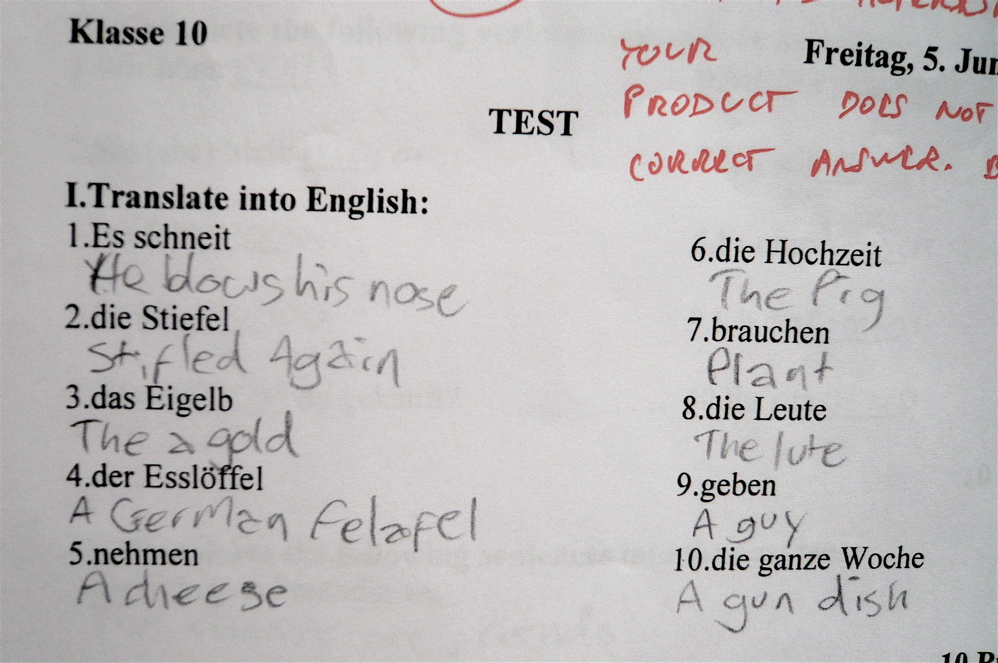 Klasse 10
YOUR
Freitag, 5. Jun
PRODUCT DOES NOT
TEST
CORRECT ANSWER.
I.Translate into English:
1.Es schneit
He blows his nose
2.die Stiefel
Stifled Again
3.das Eigelb
The a gold
4.der Esslöffel
A German Felafel
5.nehmen
A cheese
6.die Hochzeit
The Pig
7.brauchen
Plant
8.die Leute
The lute
9.geben
A guy
10.die ganze Woche
A gun dish